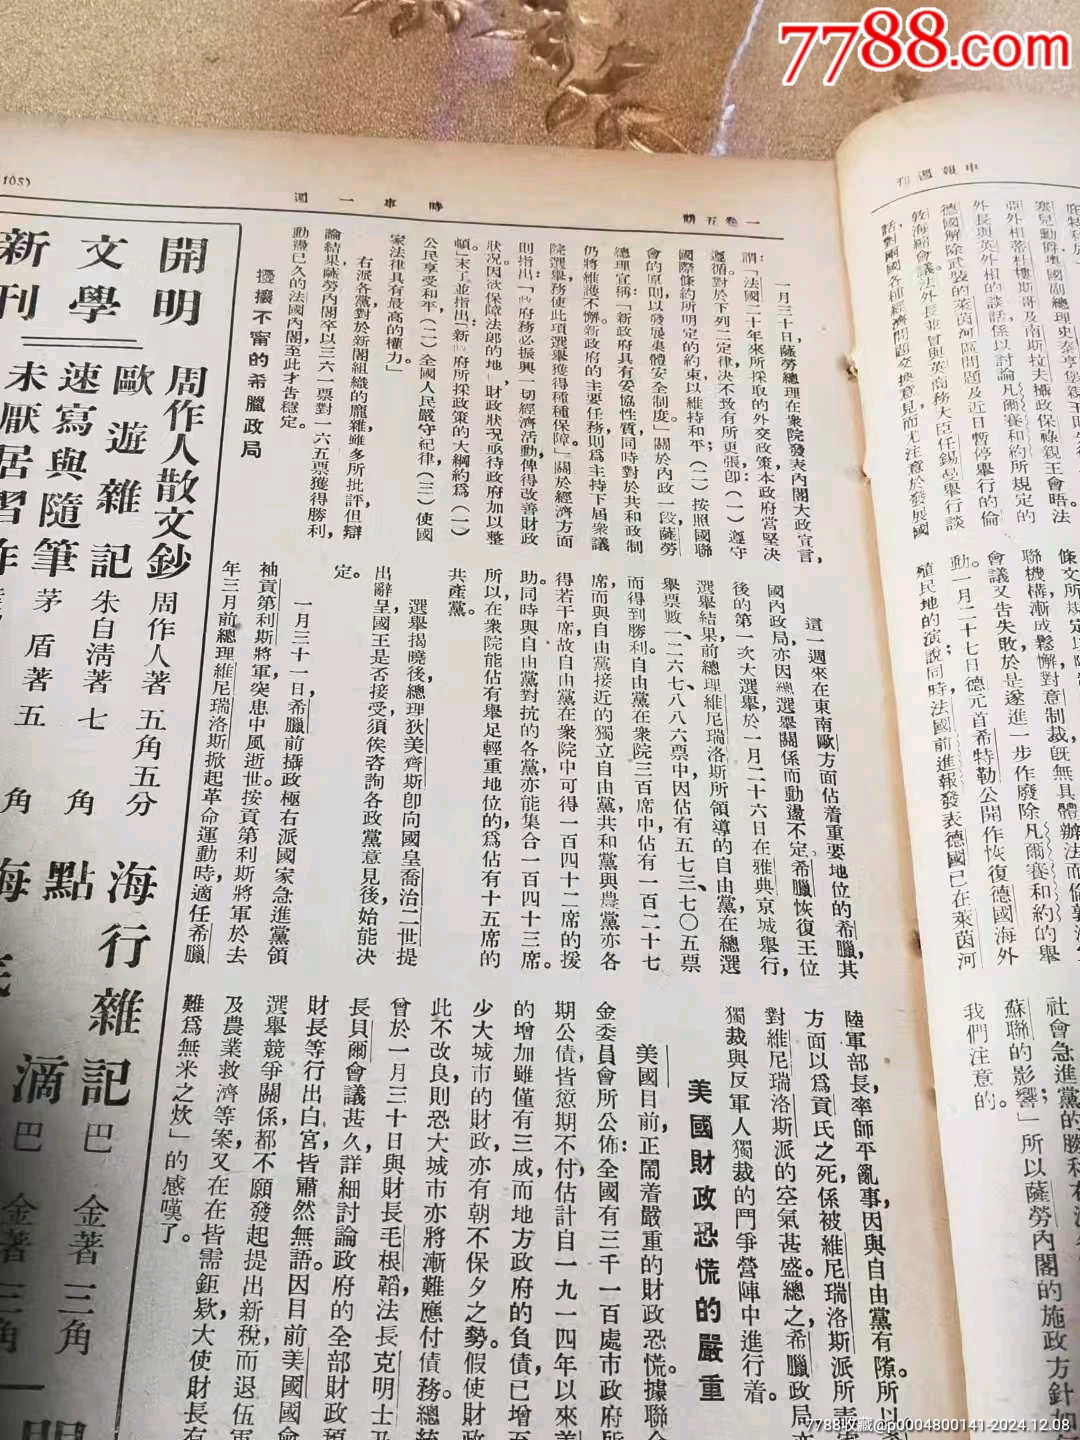 7788.com
申報週刊
一卷五期
時事一週
(105)
一月三十日薩勞總理在衆院發表內閣大政宣言，
謂：「法國二十年來所採取的外交政策，本政府當堅決
遵循。對於下列二定律決不致有所更張：卽（一）遵守
國際條約所明定的約束以維持和平；（二）按照國聯
會的原則以發展集體安全制度。」關於內政一段，薩勞
總理宣稱：「新政府具有妥協性質，同時對於共和政制
仍將維護不懈。新政府的主要任務，則爲主持下屆衆議
院選舉，務使此項選舉獲得種種保障。」關於經濟方面
則指出：「政府務必振興一切經濟活動，俾得改善財政
狀況。因欲保障法郎的地位，財政狀況亟待政府加以整
頓。」末了並指出：「新政府所採政策的大綱約爲（一）
公民享受和平，（二）全國人民嚴守紀律，（三）使國
家法律具有最高的權力。」
右派各黨對於新閣組織的龐雜，雖多所批評，但辯
論結果，薩勞內閣卒以三六一票對一六五票獲得勝利，
動盪已久的法國內閣，至此才告穩定。
擾攘不甯的希臘政局
這一週來，在東南歐方面佔着重要地位的希臘，其
國內政局亦因總選舉關係而動盪不定。希臘恢復王位
後的第一次大選舉，於一月二十六日在雅典京城舉行，
選舉結果，前總理維尼瑞洛斯所領導的自由黨在總選
舉票數一、二六七、八八六票中，因佔有五七三、七〇五票
而得到勝利。自由黨在衆院三百席中，佔有一百二十七
席，而與自由黨接近的獨立自由黨、共和黨與農黨亦各
得若干席，故自由黨在衆院中可得一百四十二席的援
助。同時，與自由黨對抗的各黨亦能集合一百四十三席。
所以在衆院能佔有舉足輕重地位的，爲佔有十五席的
共產黨。
選舉揭曉後，總理狄美齊斯卽向國皇喬治二世提
出辭呈，國王是否接受，須俟咨詢各政黨意見後，始能決
定。
一月三十一日，希臘前攝政極右派國家急進黨領
袖貢第利斯將軍，突患中風逝世。按貢第利斯將軍於去
年三月前總理維尼瑞洛斯掀起革命運動時，適任希臘
陸軍部長，率師平亂，事因與自由黨有隙。所以
方面以爲貢氏之死，係被維尼瑞洛斯派所
對維尼瑞洛斯派的空氣甚盛。總之，希臘政局
獨裁與反軍人獨裁的鬥爭營陣中進行着。
美國財政恐慌的嚴重
美國目前，正鬧着嚴重的財政恐慌。據聯
金委員會所公佈：全國有三千一百處市政府
期公債，皆愆期不付，估計自一九一四年以來，
的增加雖僅有三成，而地方政府的負債，已增
少大城市的財政，亦有朝不保夕之勢。假使財
此不改良，則恐大城市亦將漸難應付債務。總統
曾於一月三十日與財長毛根韜，法長克明士及
長貝爾會議甚久，詳細討論政府的全部財政預
財長等行出白宮，皆肅然無語。因目前美國國會
選舉競爭關係，都不願發起提出新稅，而退伍軍
及農業救濟等案，又在在皆需鉅欵，大使財長有
難爲無米之炊」的感嘆了。
開明
文學
新刊
周作人散文鈔 周作人著 五角五分
歐遊雜記 朱自清著 七角
速寫與隨筆 茅盾著 五角
未厭居習作
海行雜記 巴金著 三角
點滴 巴金著 三角
海底
塞兒動爵、奧國副總理史泰亨堡親王
亞外相蒂杜樓斯哥及南斯拉夫攝政保祿親王會晤。法
外長與英外相的談話，係以討論凡爾賽和約所規定的
德國解除武裝的萊茵河區問題，及近日暫停舉行的倫
敦海縮會議。法外長並會與英商務大臣任錫曼舉行談
話，對兩國各種經濟問題交換意見，而尤注意於發展國
聯機構漸成鬆懈，對意制裁旣無具體辦法，而倫敦海
會議又告失敗，於是遂進一步作廢除凡爾賽和約的舉
動。一月二十七日，德元首希特勒公開作恢復德國海外
殖民地的演說；同時，法國前進報發表德國已在萊茵河
社會急進黨的勝利
蘇聯的影響」，所以薩勞內閣的施政方針
我們注意的。
7788收藏@p0004800141-2024.12.08